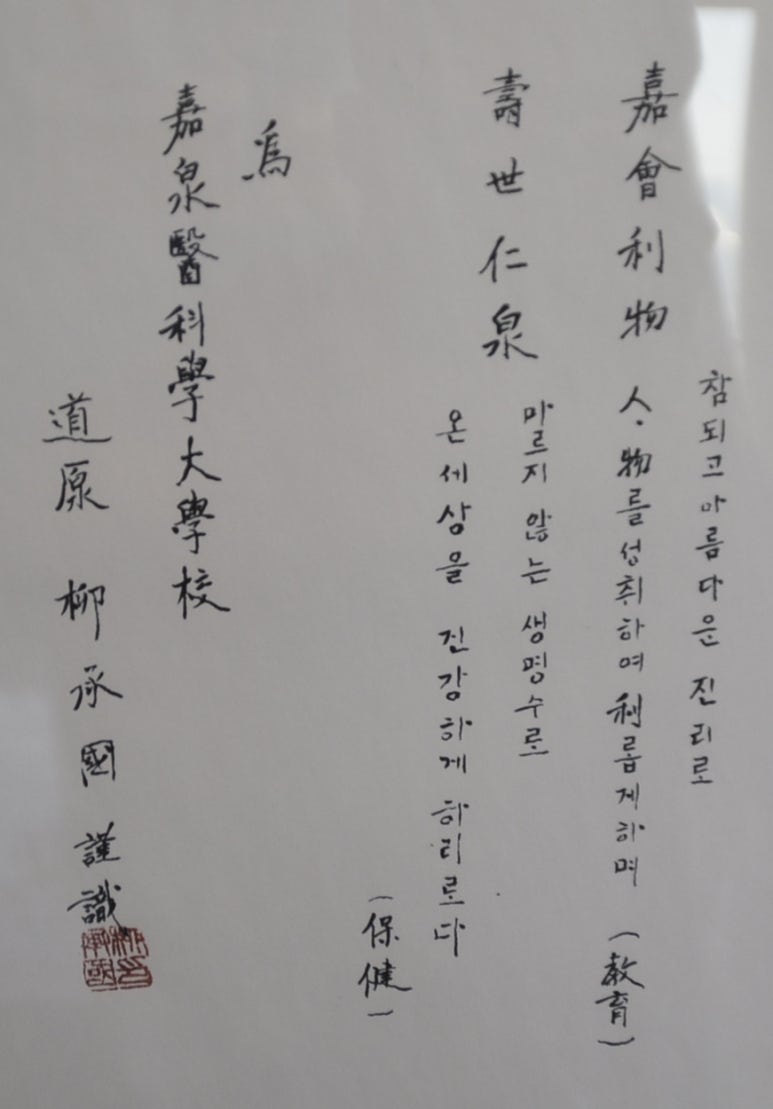 嘉會利物
참되고 아름다운 진리로
人·物를 성취하여 利롭게하며 (敎育)
壽世仁泉
마르지 않는 생명수로
온세상을 건강하게 하리로다
(保健)
爲
嘉泉醫科學大學校
道原 柳承國 謹識